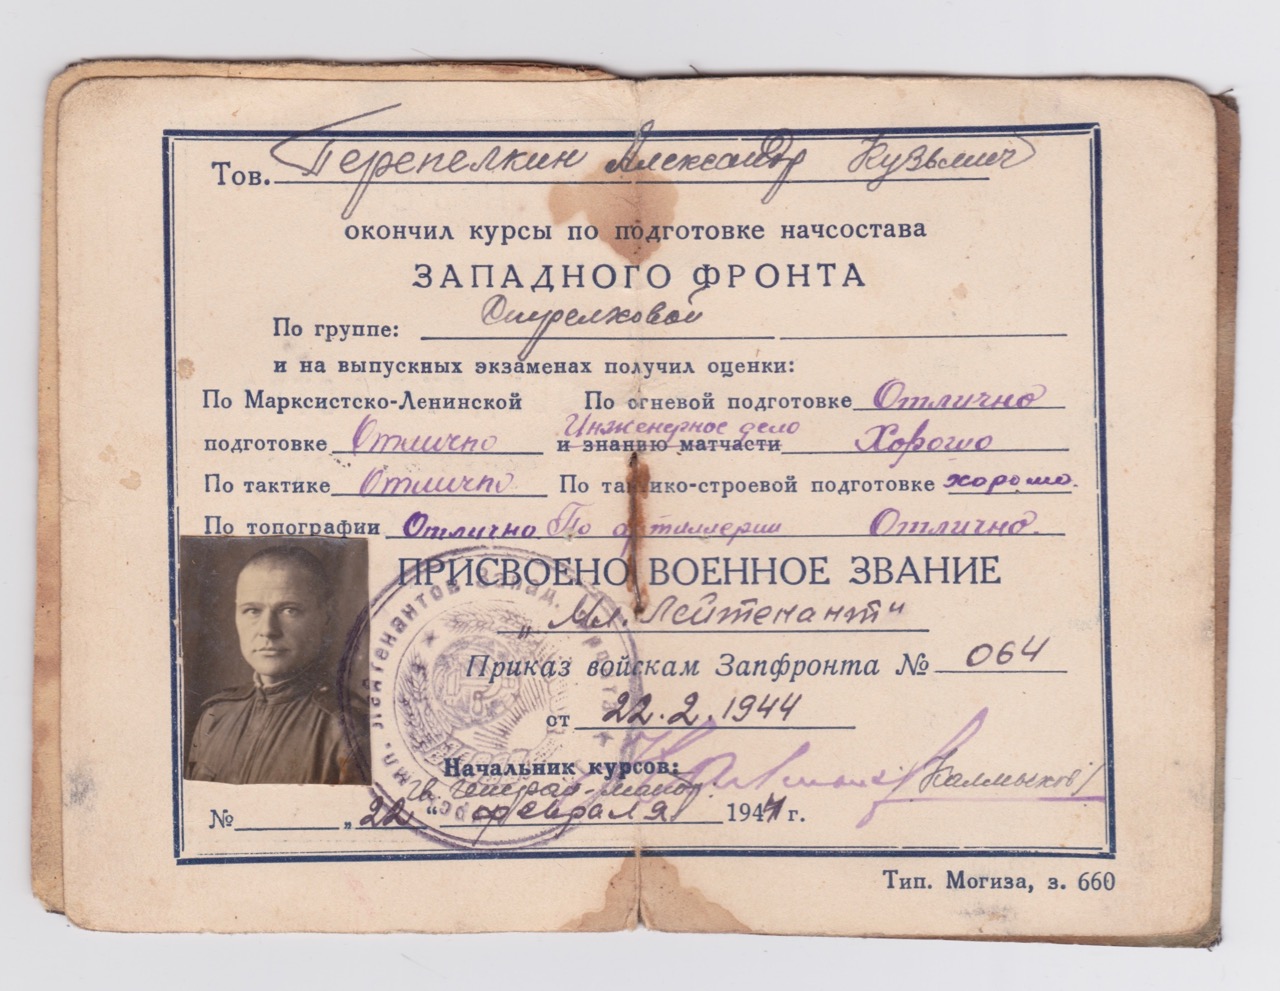 Тов. Перепелкин Александр Кузьмич
окончил курсы по подготовке начсостава
ЗАПАДНОГО ФРОНТА
По группе: Стрелковой
и на выпускных экзаменах получил оценки:
По Марксистско-Ленинской По огневой подготовке Отлично
Инженерное дело
подготовке Отлично и знанию матчасти Хорошо
По тактике Отлично По тактико-строевой подготовке хорошо.
По топографии Отлично По артиллерии Отлично.
ПРИСВОЕНО ВОЕННОЕ ЗВАНИЕ
„Мл. Лейтенант"
Приказ войскам Запфронта № 064
от 22.2.1944
Начальник курсов:
Гв. генерал-майор /Калмыков/
№ „22" февраля 1944 г.
мл. лейтенантов Запад. фронта
Тип. Могиза, з. 660